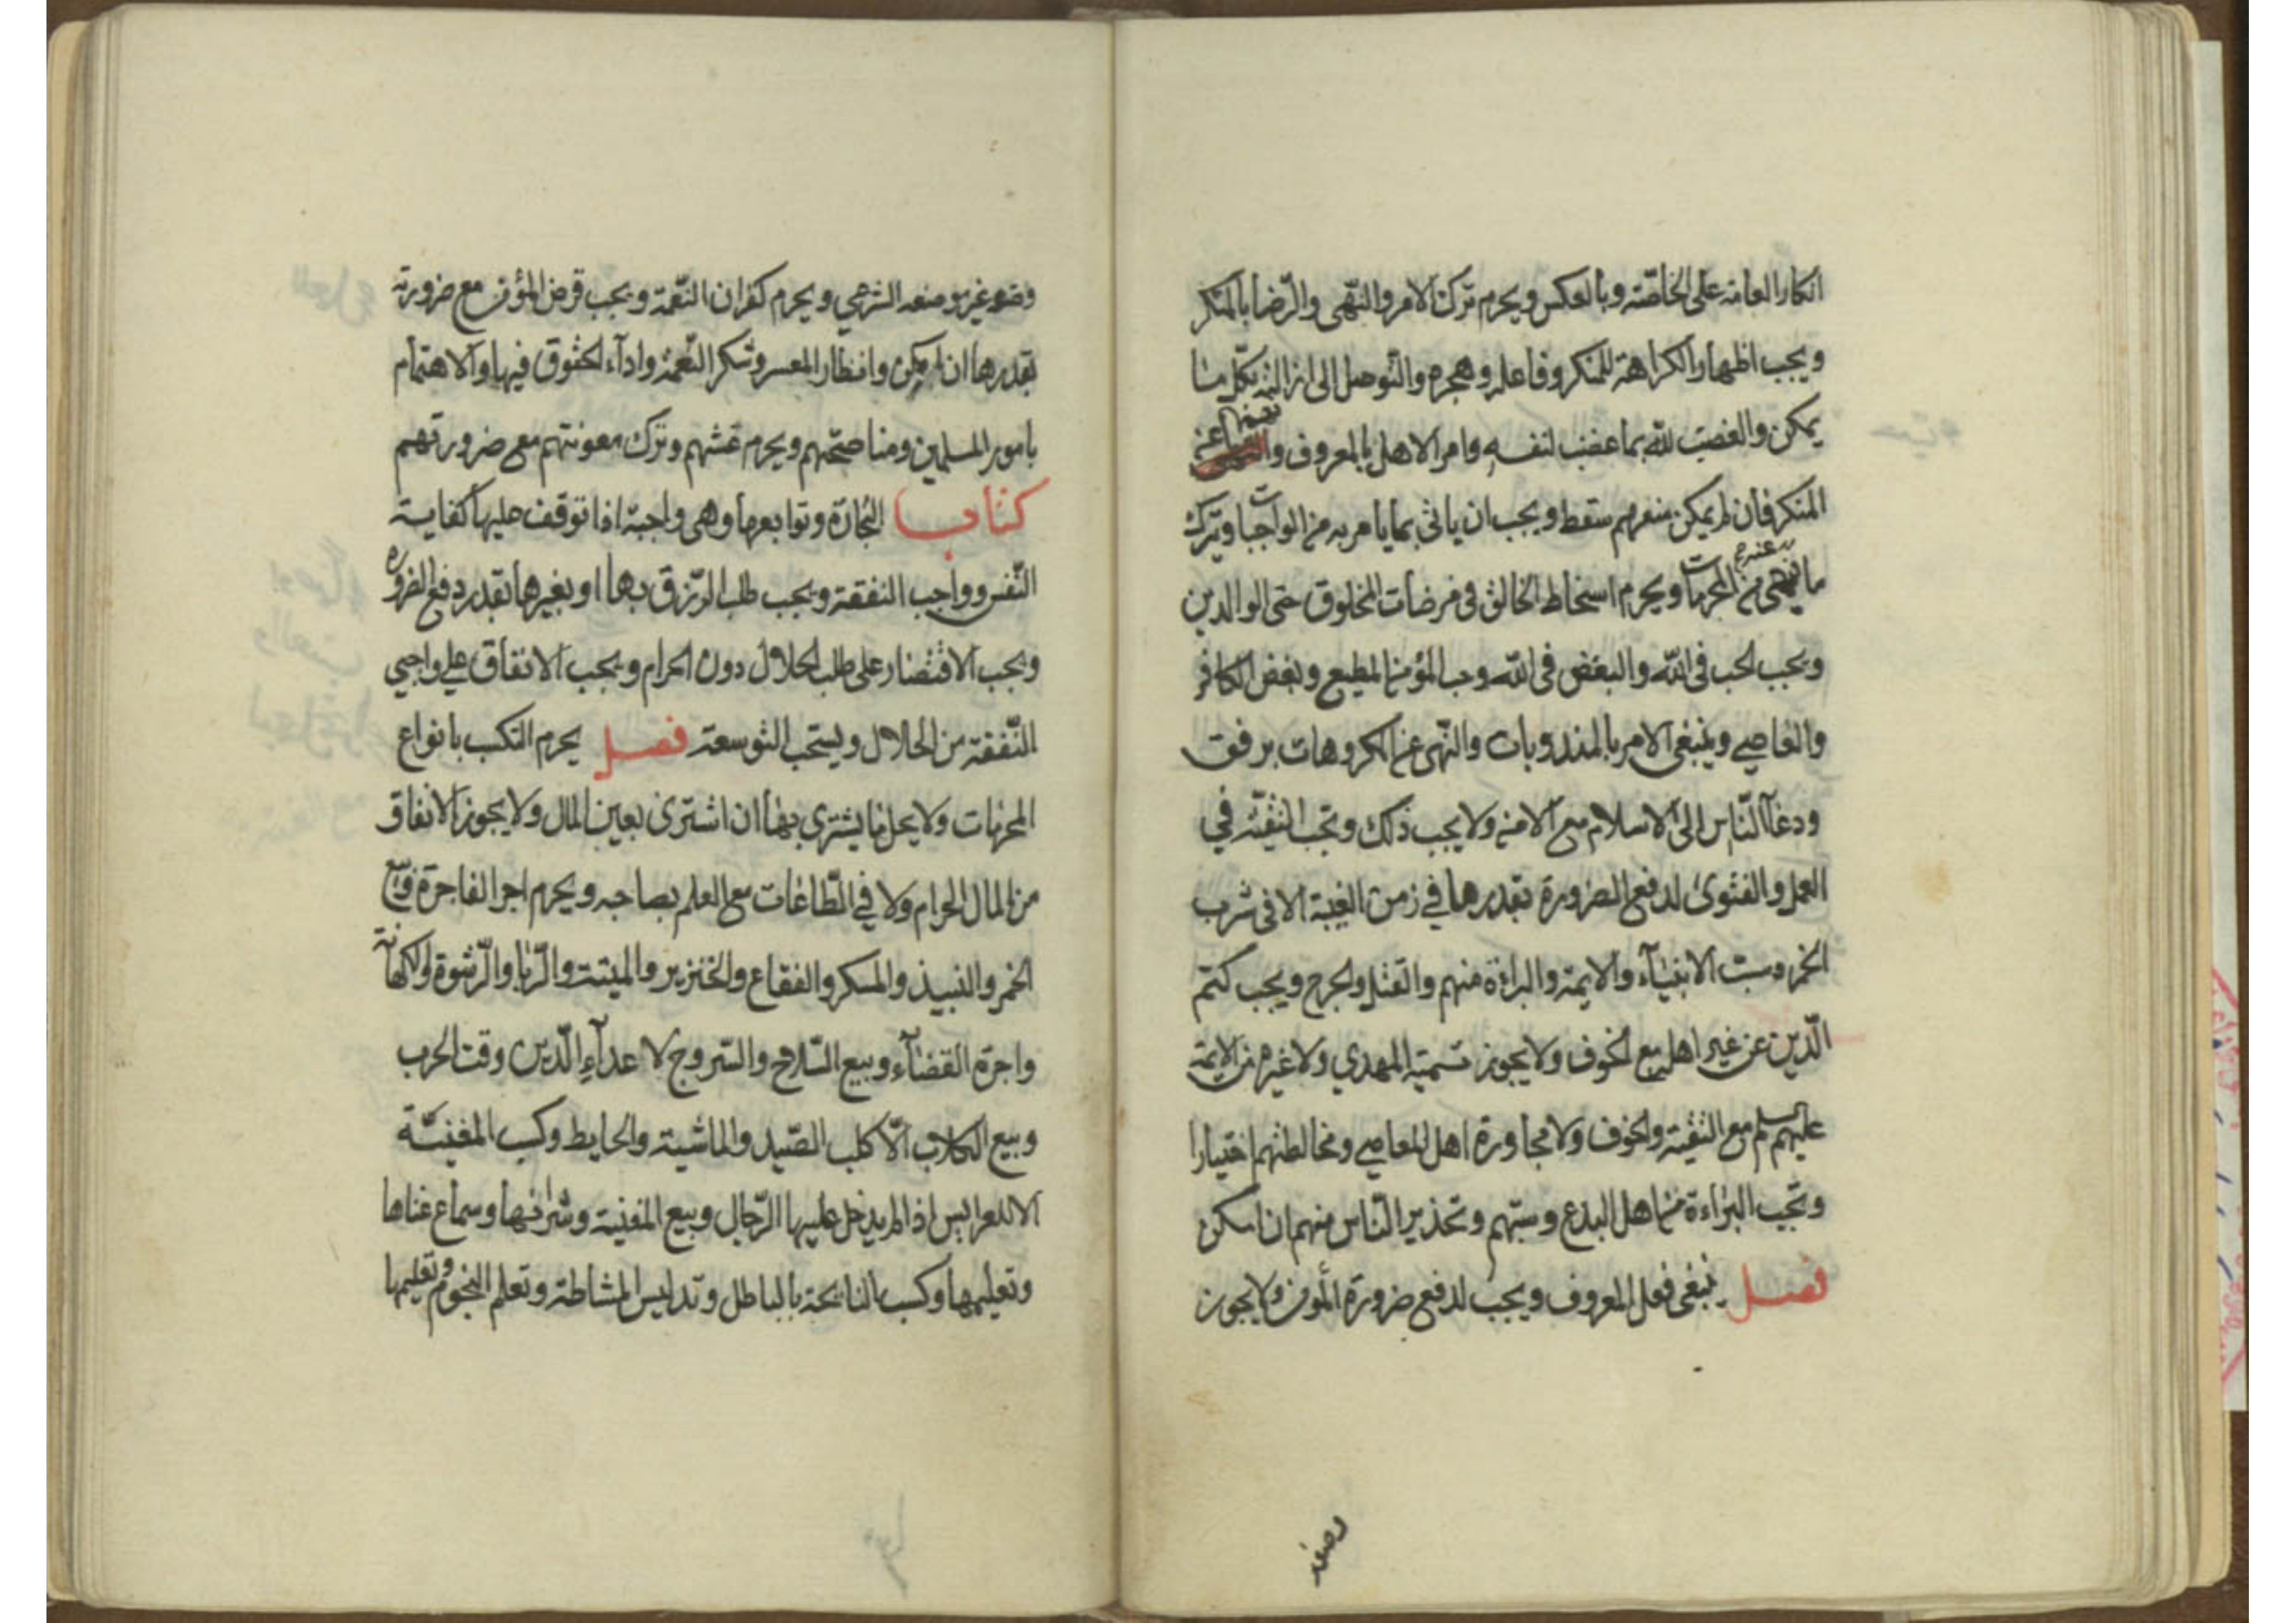 انكار العامة على الخاصّة وبالعكس ويحرم ترك الامر والنّهى والرّضا بالمنكر
ويجب اظهار الكراهة للمنكر وفاعله وهجره والتّوصل الى ازالته بكلّ ما
يمكن والغضب للّه بما غضب لنفسه وامر الاهل بالمعروف و نهيهم عن
المنكر فان لم يمكن منعهم سقط ويجب ان ياتى بما يامر به من الواجبات ويترك
ما ينهى عنه من المحرمات ويحرم اسخاط الخالق فى مرضات المخلوق حتى الوالدين
ويجب الحب فى اللّه والبغض فى اللّه وحب المؤمن المطيع وبغض الكافر
والعاصي وينبغى الامر بالمندوبات والنّهى عن المكروهات برفق
ودعاء النّاس الى الاسلام مع الامن ولا يجب ذلك وتجب التقيّة في
العمل والفتوى لدفع الضرورة بقدرها في زمن الغيبة الا فى شرب
الخمر وسبّ الانبياء والايمة والبراءة منهم والقتل والجرح ويجب كتم
الّدين عن غير اهله مع الخوف ولا يجوز تسمية المهدي ولا غيره من الايمة
عليهم السلم مع التقية والخوف ولا مجاورة اهل المعاصي ومخالطتهم اختيارا
وتجب البراءة من اهل البدع وسبّهم وتحذير النّاس منهم ان امكن
فصل ينبغى فعل المعروف ويجب لدفع ضرورة المؤمن ولا يجوز
وضعه
وضعه غير موضعه الشرعي ويحرم كفران النّعمة ويجب قرض المؤمن مع ضرورته
بقدرها ان امكن وانظار المعسر وشكر النّعمة واداء الحقوق فيها والاهتمام
بامور المسلمين ومناصحتهم ويحرم غشهم وترك معونتهم مع ضرورتهم
كتاب التجارة وتوابعها وهى واجبة اذا توقف عليها كفاية
النّفس وواجب النفقة ويجب طلب الرّزق بها او بغيرها بقدر دفع الضرورة
ويجب الاقتصار على طلب الحلال دون الحرام ويجب الانفاق على واجبي
النّفقة من الحلال ويستحب التوسعة فصل يحرم التكسب بانواع
المحرمات ولا يحل ما يشترى بها ان اشترى بعين المال ولا يجوز الانفاق
من المال الحرام ولا في الطّاعات مع العلم بصاحبه ويحرم اجر الفاجرة وبيع
الخمر والنبيذ والمسكر والفقاع والخنزير والميتة والرّبا والرّشوة والكهانة
واجرة القضاء وبيع السّلاح والسّروج لاعداء الّدين وقت الحرب
وبيع الكلاب الّا كلب الصّيد والماشية والحايط وكسب المغنيّة
الا للعرايس اذا لم يدخل عليها الرّجال وبيع المغنية وشرائها وسماع غناها
وتعليمها وكسب النايحة بالباطل وتدليس الماشطة وتعلم النجوم وتعليمها